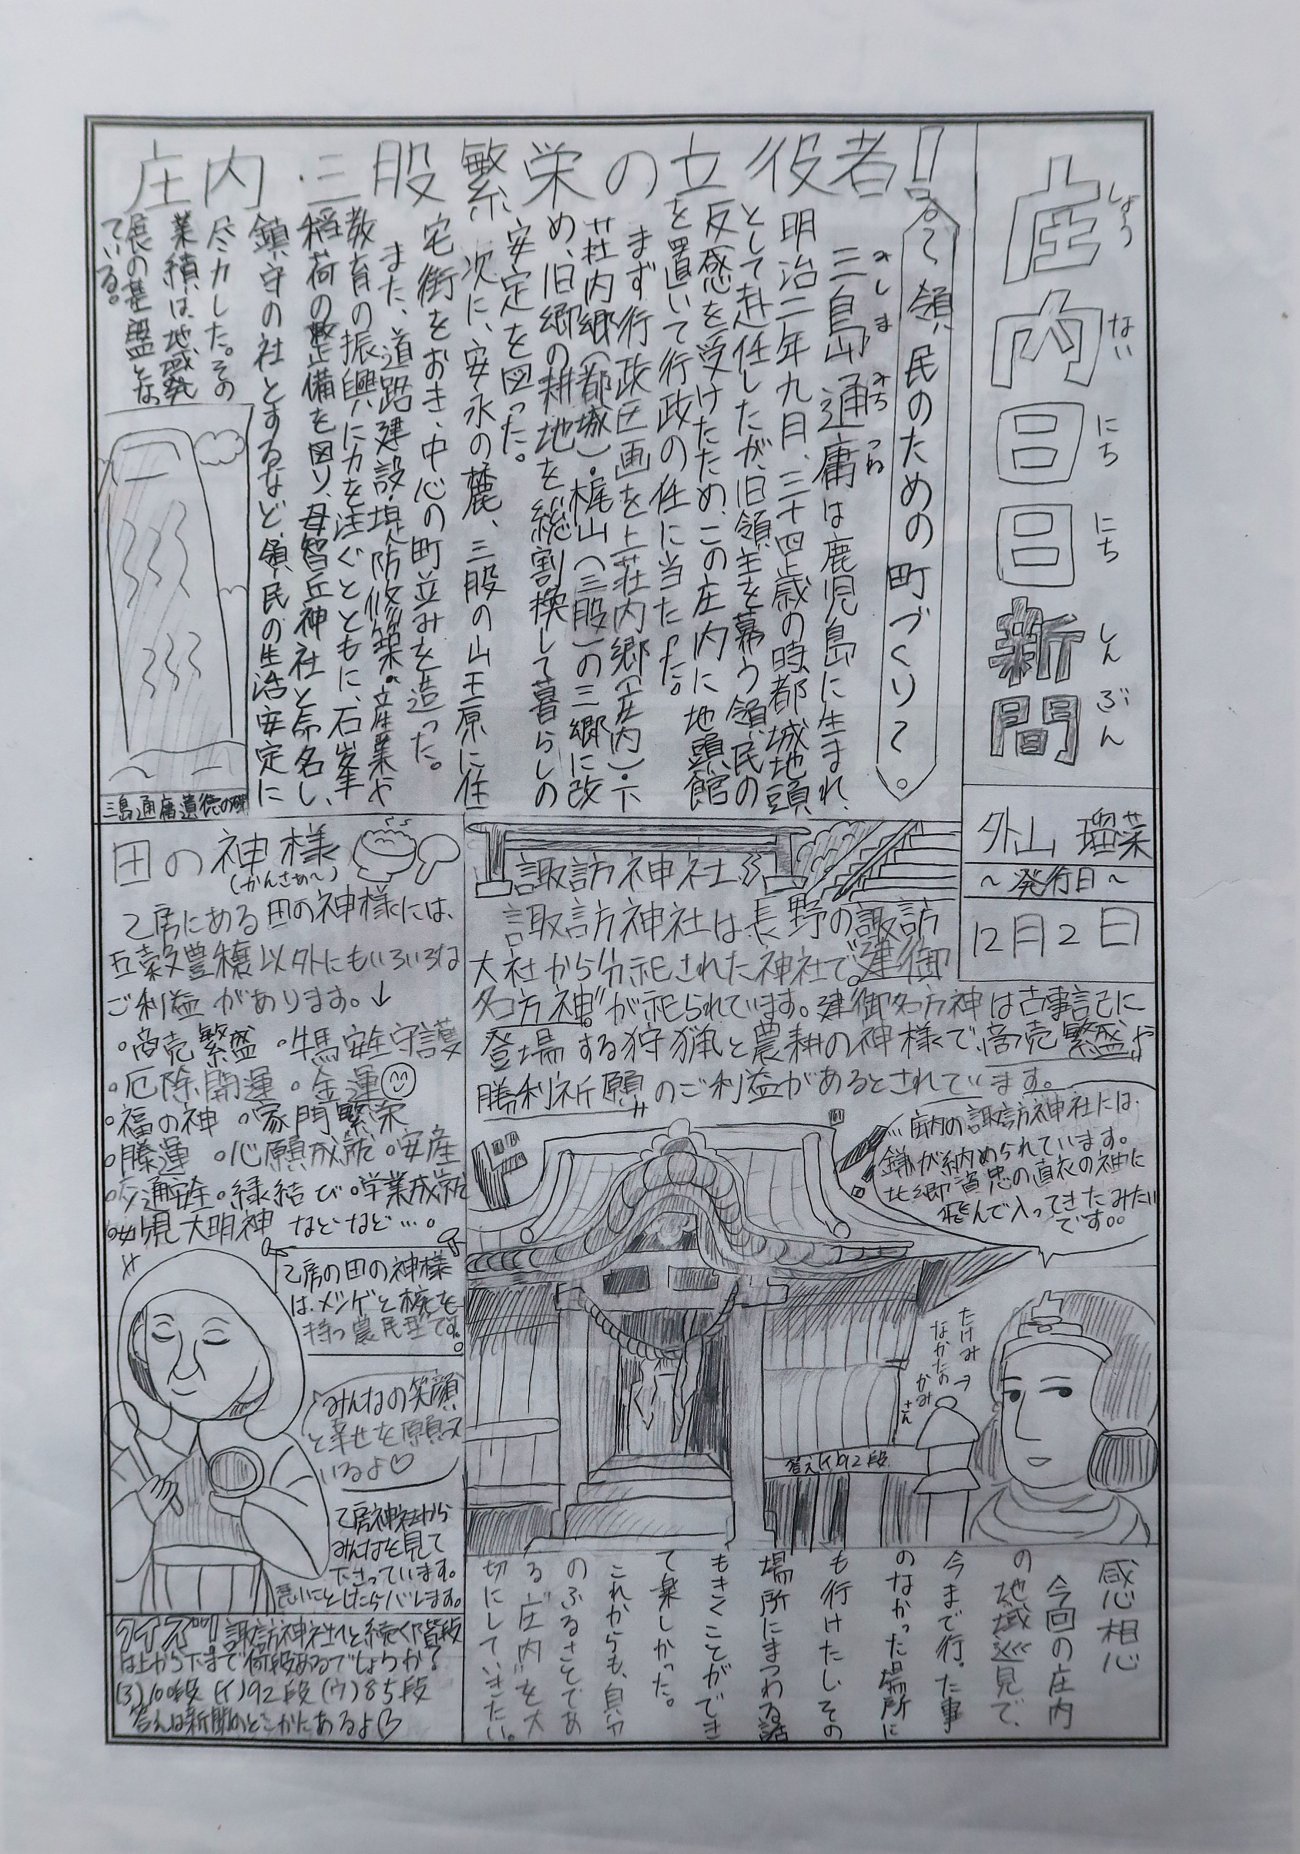 庄内日日新聞
しょう ない にち にち しんぶん
外山 瑠菜
～発行日～
12月2日
庄内・三股繁栄の立役者!!
全て、領民のための町づくりで。
三島通庸は鹿児島に生まれ、
みしま みち つね
明治二年九月、三十四歳の時、都城地頭
として赴任したが、旧領主を慕う領民の
反感を受けたため、この庄内に地頭館
を置いて行政の任に当たった。
まず行政区画を上荘内郷(庄内)・下
荘内郷(都城)・梶山(三股)の三郷に改
め、旧郷の耕地を総割換して暮らしの
安定を図った。
次に、安永の麓、三股の山王原に住
宅街をおき、中心の町並みを造った。
また、道路建設・堤防修築・産業や
教育の振興に力を注ぐとともに、石峯
稲荷の整備を図り、母智丘神社と命名し、
鎮守の社とするなど、領民の生活安定に
尽力した。その
業績は地域発
展の基盤となっ
ている。
三島通庸遺徳の碑
諏訪神社
諏訪神社は長野の諏訪
大社から分祀された神社で"建御
名方神"が祀られています。建御名方神は古事記に
登場する狩猟と農耕の神様で、商売繁盛や
勝利祈願のご利益があるとされています。
庄内の諏訪神社には、
鏡が納められています。
北郷資忠の直衣の袖に
飛んで入ってきたみたい
です。
たけみ
なかたの
かみ
さん
答え(イ)92段
田の神様
(かんさぁ～)
乙房にある田の神様には、
五穀豊穣以外にもいろいろな
ご利益があります。↓
・商売繁盛 ・牛馬安全守護
・厄除開運 ・金運
・福の神 ・家門繁栄
・勝運 ・心願成就 ・安産
・交通安全 ・縁結び ・学業成就
・妙見大明神 などなど…。
乙房の田の神様
は、メシゲと椀を
持つ農民型です。
みんなの笑顔
と幸せを願って
いるよ♡
乙房神社から
みんなを見て
下さっています。
悪いことしたらバレます。
クイズ!! 諏訪神社へと続く階段
は上から下まで何段あるでしょうか?
(ア)100段 (イ)92段 (ウ)85段
答えは新聞のどこかにあるよ♡
感想
今回の庄内
の地域巡見で、
今まで行った事
のなかった場所に
も行けたし、その
場所にまつわる話
もきくことができ
て楽しかった。
これからも、自分
のふるさとであ
る"庄内"を大
切にしていきたい。